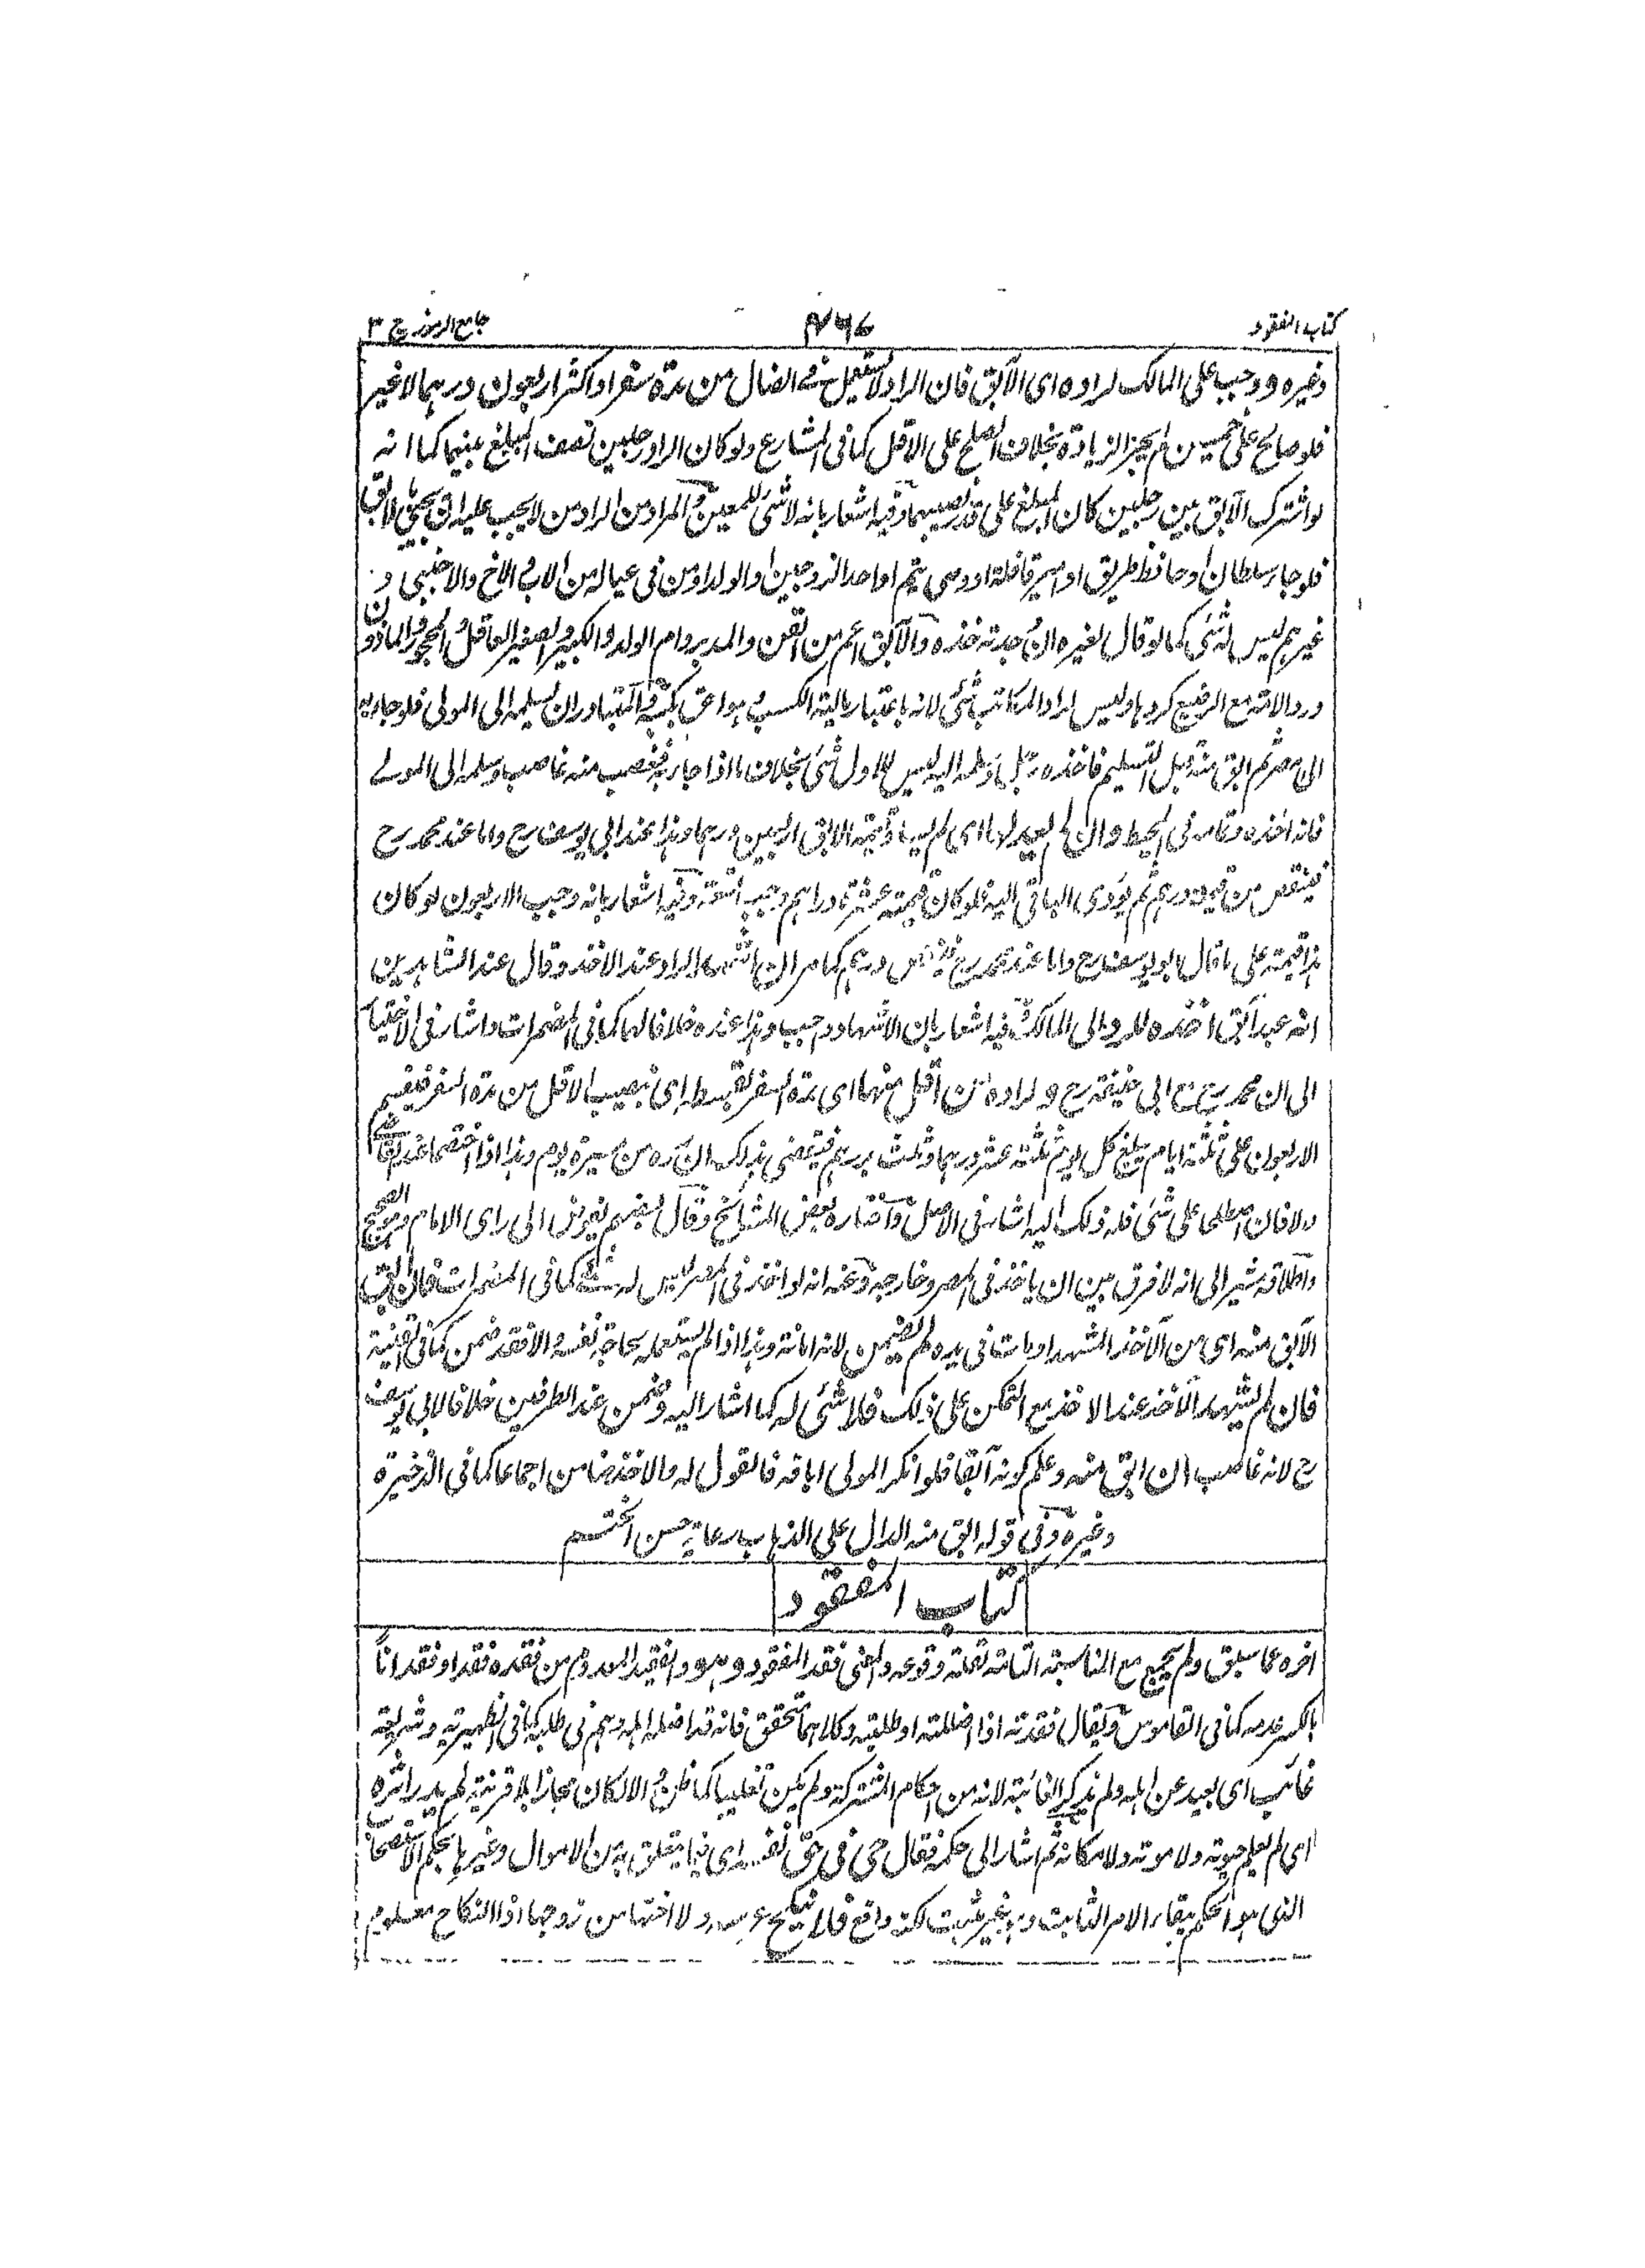 كتاب المفقود ۴۶۷ جامع الرموز ج ۳
وغيره و وجب على المالك لراده اى الآبق فان الراد لا يستعمل فى الضال من مدة سفر او اكثر اربعون درهما لا غير
فلو صالح على خمسين لم يجز الزيادة بخلاف الصلح على الاقل كما فى المشارع ولو كان الراد رجلين نصف المبلغ بينهما كما انه
لو اشترك الآبق بين رجلين كان المبلغ على قدر نصيبهما وفيه اشعار بانه لا شئ للمعين والمراد من الراد من لا يجب عليه ان يجئ بالآبق
فلو جاء سلطان او حافظ طريق او امير قافلة او وصى يتيم او احد الزوجين او الولد او من فى عياله من الاب الاخ والاجنبى و
غيرهم ليس له شئ كما لو قال لغيره ان وجدته خذه والآبق اعم من القن والمدبر وام الولد والكبير والصغير العاقل والمحجور والماذون
ورد الامة مع الرضيع كردها وليس لراد المكاتب شئ لانه باعتبار مالية الكسب وهو احق بكسبه والمتبادر ان يسلمه الى المولى فلو جاء به
الى مصر ثم ابق منه قبل التسليم فاخذه رجل وسلمه اليه ليس للاول شئ بخلاف ما اذا جاء به فغصب منه غاصب وسلمه الى المولى
فانه اخذه وتمامه فى المحيط وان لم يعدلها اى لم يساو قيمة الآبق اربعين درهما وهذا عند ابى يوسف رح واما عند محمد رح
فينقص من قيمته درهم ثم يؤدى الباقى اليه فلو كان قيمته عشرة دراهم وجب تسعة وفيه اشعار بانه وجب الاربعون لو كان
هذا قيمته على ما قال ابو يوسف رح واما عند محمد رح فينقص درهم كما مر ان اشهد الراد عند الاخذ وقال عند الشاهدين
انه عبد آبق اخذه للرد الى المالك فيه اشعار بان الاشهاد وجب وهذا عنده خلافا لهما كما فى المضمرات واشار فى الاختيار
الى ان محمد رح مع ابى حنيفة رح و لراده من اقل منها اى مدة السفر بقسطه اى نصيب الاقل من مدة السفر فيقسم
الاربعون على ثلثة ايام يبلغ كل يوم ثلثة عشر درهما وثلث درهم فيقضى بذلك ان رده من مسيرة يوم وهذا اذا اختصما عند القاضى
والا فان اصطلحا على شئ فله ذلك اليه اشار فى الاصل واختاره بعض المشائخ وقال بعضهم يفوض الى راى الامام وهو الصحيح
واطلاقه مشير الى انه لا فرق بين ان ياخذ فى المصر وخارجه وعنه انه لو اخذ فى المصر ليس له شئ كما فى المضمرات فان ابق
الآبق منه اى من الآخذ المشهد او مات فى يده لم يضمن لانه امانة وهذا اذا لم يستعمله بحاجة نفسه والا فقد ضمن كما فى القنية
فان لم يشهد الآخذ عند الاخذ مع التمكن على ذلك فلا شئ له كما اشار اليه وضمن عند الطرفين خلافا لابى يوسف
رح لانه غاصب ان ابق منه وعلم كونه آبقا فلو انكر المولى اباقه فالقول له والآخذ ضامن اجماعا كما فى الذخيرة
وغيره وفى قوله ابق منه الدال على الذهاب رعاية حسن الختم
كتاب المفقود
اخره عما سبق ولم يجمع مع المناسبة التامة لقلة وقوعه والمعنى فقد المفقود وهو والفقيد المعدوم من فقده فقدا وفقدانا
بالكسر عدمه كما فى القاموس ويقال فقدته اذا اضللته او طلبته وكلاهما متحقق فانه قد اضله اهله وهم فى طلبه كما فى الظهيرية وشريعة
غائب اى بعيد عن اهله ولم يذكر الغائبة لانه من احكام المشتركة ولم يكن تغليبا كما ظن والا لكان مجازا بلا قرينة لم يدر اثره
اى لم يعلم حيوته ولا موته ولا مكانه ثم اشار الى حكمه فقال حى فى حق نفسه اى فيما يتعلق به من الاموال وغيرها بحكم الاستصحاب
الذى هو الحكم ببقاء الامر الثابت وهو غير مثبت لكنه دافع فلا ينكح عرسه ولا اختها من زوجها اذ النكاح معلوم